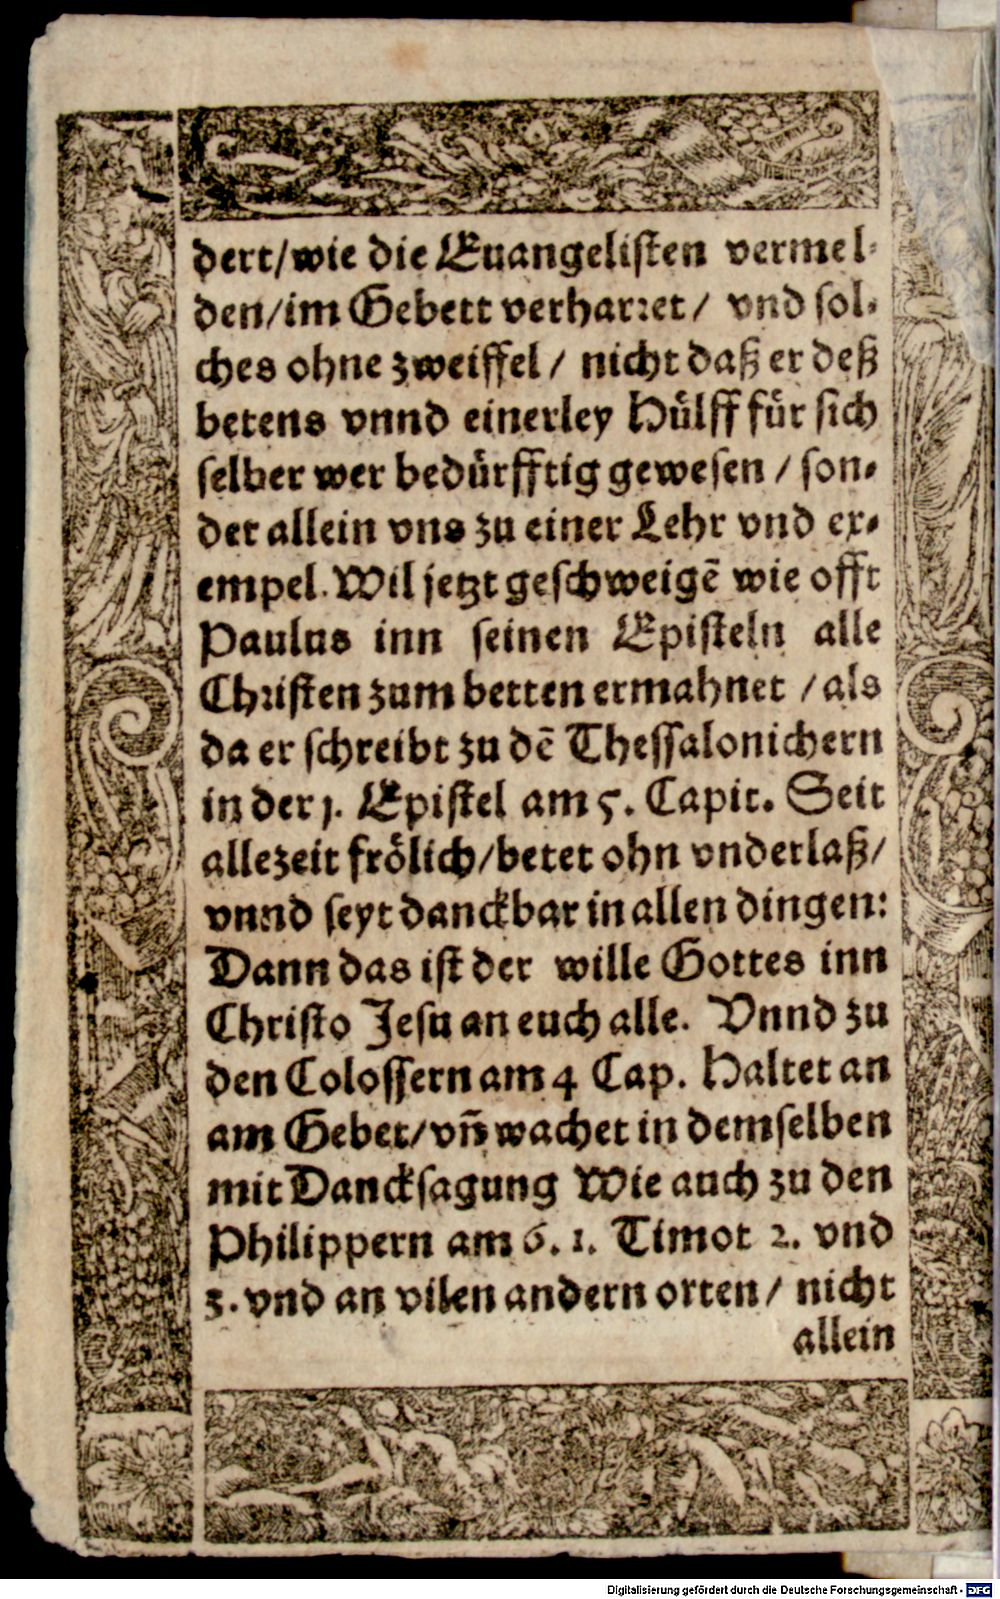 dert/wie die Euangelisten vermel-
den/im Gebett verharret/ vnd sol-
ches ohne zweiffel/ nicht daß er deß
betens vnnd einerley Hülff für sich
selber wer bedürfftig gewesen/ son-
der allein vns zu einer Lehr vnd ex-
empel. Wil jetzt geschweigē wie offt
Paulus inn seinen Episteln alle
Christen zum betten ermahnet/als
da er schreibt zu dē Thessalonichern
in der j. Epistel am 5. Capit. Seit
allezeit frölich/betet ohn vnderlaß/
vnnd seyt danckbar in allen dingen:
Dann das ist der wille Gottes inn
Christo Jesu an euch alle. Vnnd zu
den Colossern am 4 Cap. Haltet an
am Gebet/vn̄ wachet in demselben
mit Dancksagung Wie auch zu den
Philippern am 6. 1. Timot 2. vnd
3. vnd an vilen andern orten/ nicht
allein
Digitalisierung gefördert durch die Deutsche Forschungsgemeinschaft - DFG